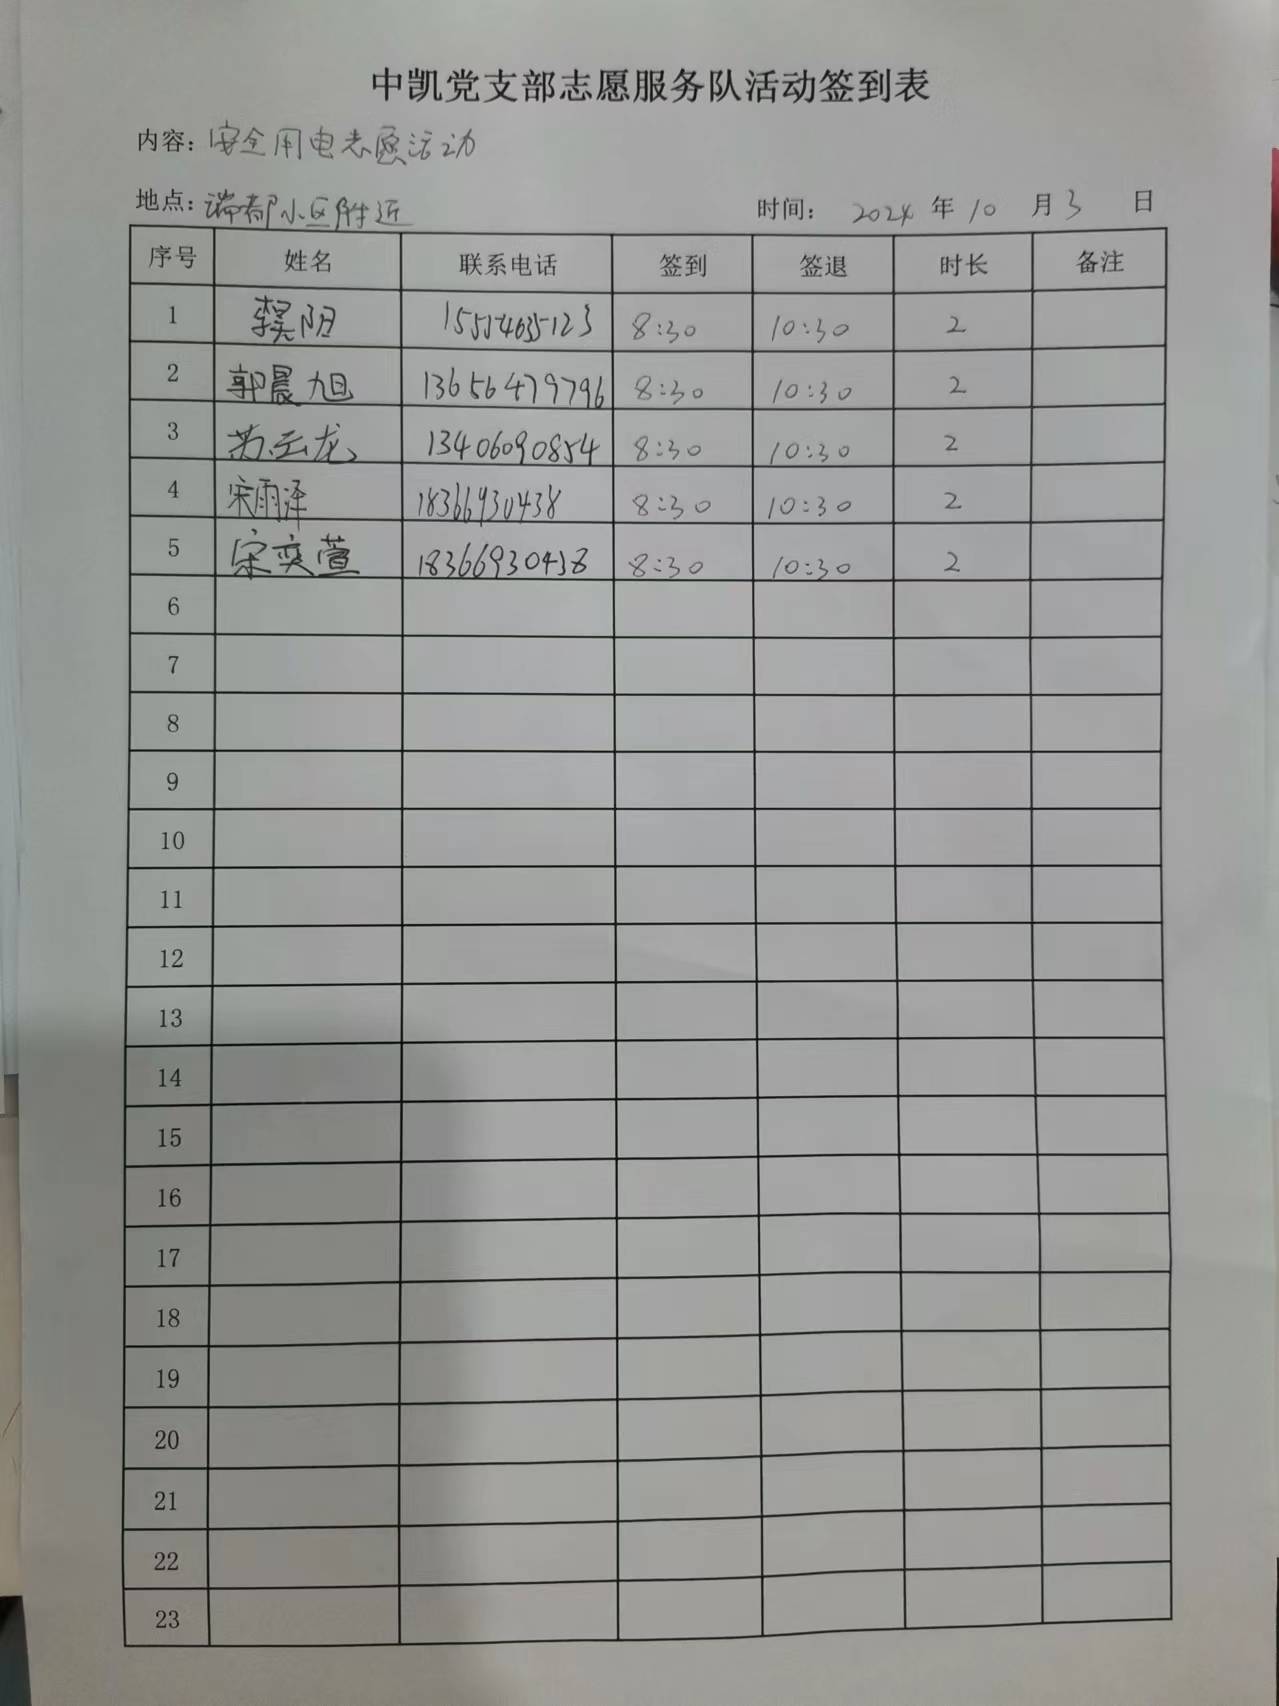 中凯党支部志愿服务队活动签到表
内容：安全用电志愿活动
地点：瑞都小区附近 时间： 2024 年 10 月 3 日
序号 姓名 联系电话 签到 签退 时长 备注
1 李昊阳 15554635123 8:30 10:30 2
2 郭晨旭 13656479796 8:30 10:30 2
3 苏云龙 13406090854 8:30 10:30 2
4 宋雨泽 18366930438 8:30 10:30 2
5 宋奕萱 18366930438 8:30 10:30 2
6
7
8
9
10
11
12
13
14
15
16
17
18
19
20
21
22
23